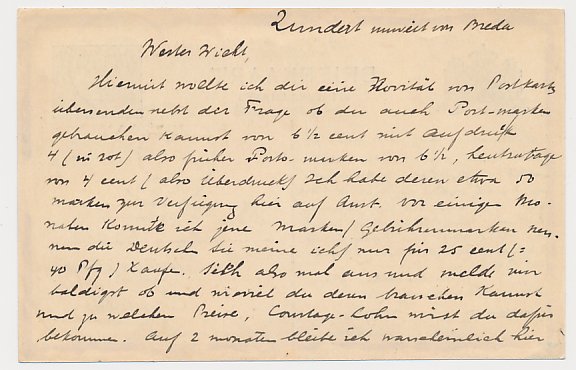 Zundert unweit von Breda
Werter Wicht,
Hiermit wollte ich dir eine Novität von Postkarte
übersenden nebst der Frage ob du auch Port-marken
gebrauchen kannst von 6 1/2 cent mit Aufdruck
4 (in rot) also früher Porto-marken von 6 1/2, heutzutage
von 4 cent (also Überdruck) Ich habe deren etwa 50
marken zur Verfügung hier auf Amt. Vor einigen Mo-
naten konnte ich jene marken (Gebührenmarken nen-
nen die Deutsch sie meine ich) nur für 25 cent (=
40 Pfg) kaufe. Sieh also mal aus und melde mir
baldigst ob und wieviel du deren brauchen kannst
und zu welchem Preise, Courtage-lohn wirst du dafür
bekommen. Auf 2 monaten bleibe ich warscheinlich hier